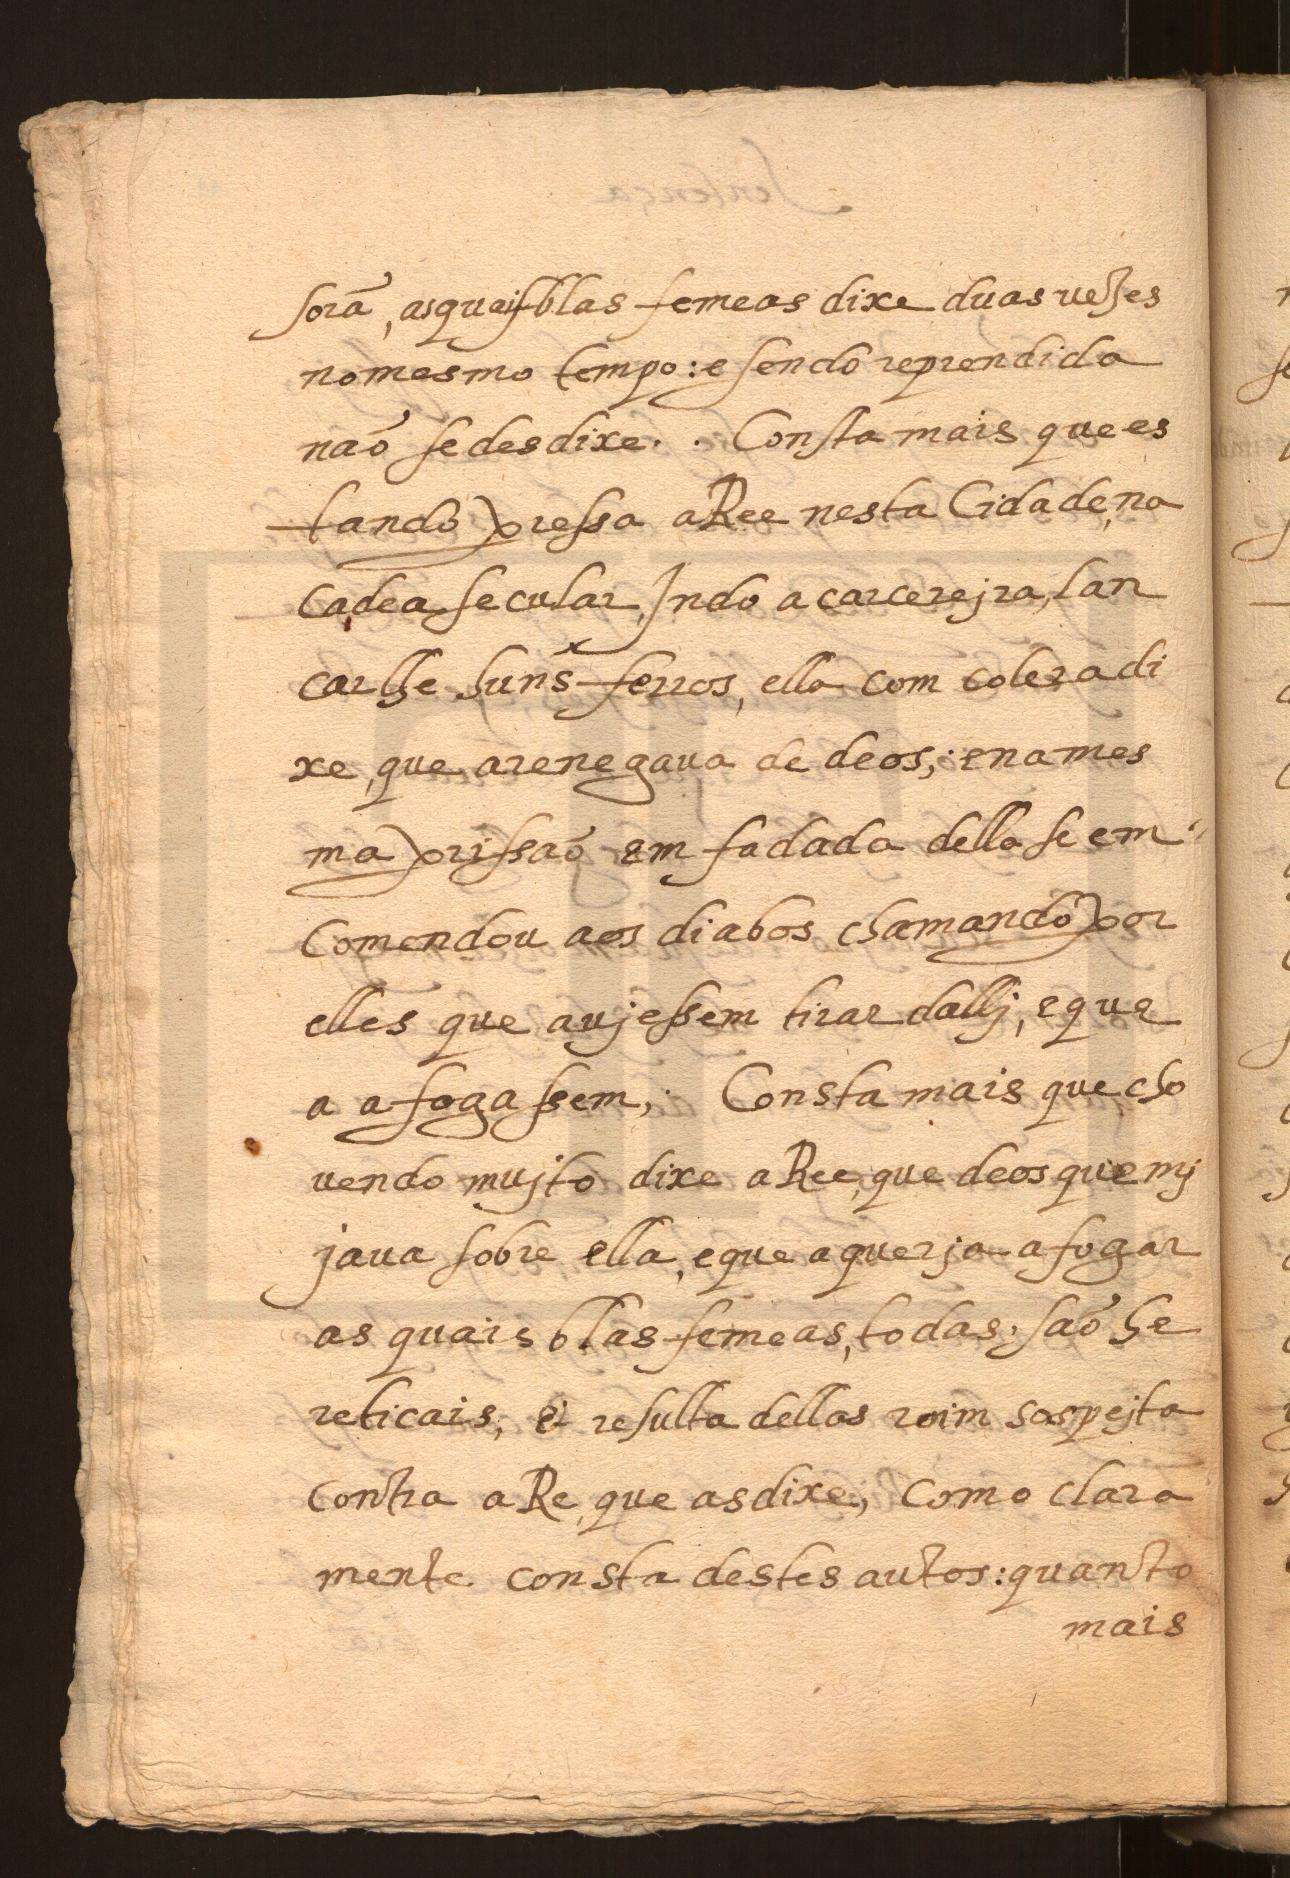 sorã, as quais blasfemeas dixe duas vezes
no mesmo tempo: e sendo reprendida
naõ se desdixe. . Consta mais que es
tando pressa a Ree nesta Cidade, na
Cadea secular, Jndo a carcerejra, lan
carlhe huñs ferros, ella com colera di
xe, que arenegaua de deos; e na mes
ma prissaõ emfadada della se em
Comendou aos diabos chamando por
elles que a ujessem tirar dallj, e que
a afogassem; Consta mais que, cho
uendo mujto dixe a Ree, que deos que mj
jaua sobre ella, e que a querja afogar
as quais blasfemeas, todas, saõ he
reticais; e resulta dellas roim sospejta
Contra a Re, que as dixe, Como clara
mente consta destes autos: quanto
mais